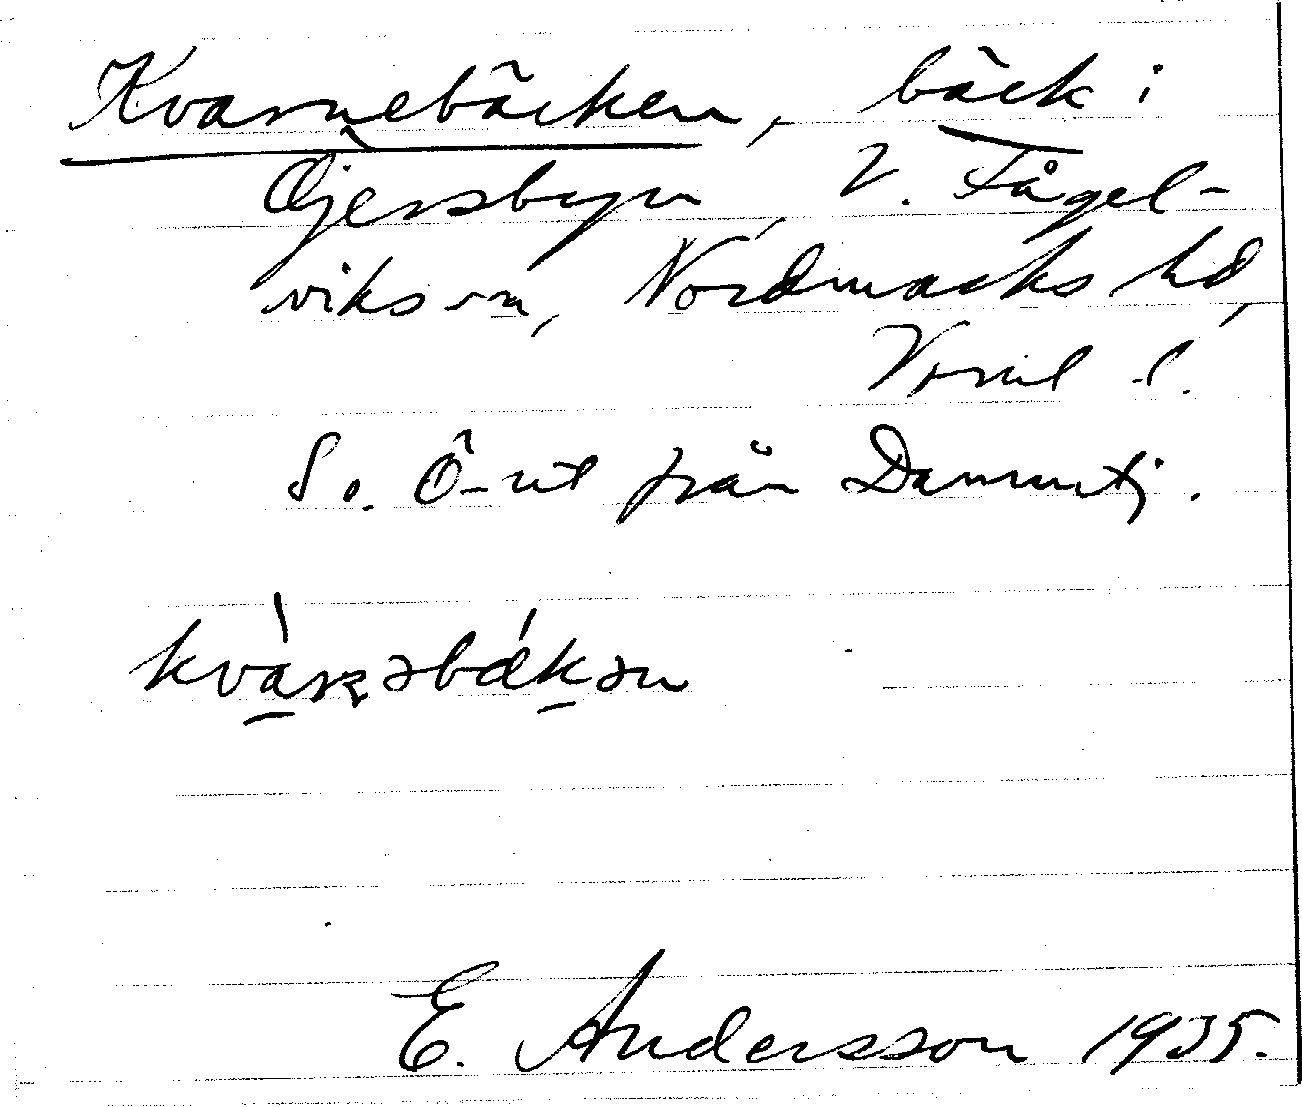 Kvarnebäcken, bäck i
Öjersbyn, V. Fågel-
viks sn, Nordmarks hd,
Värml. l.
S. o. Ö-ut från Dammtj.
kvàrnəbǽkən
E. Andersson 1935.